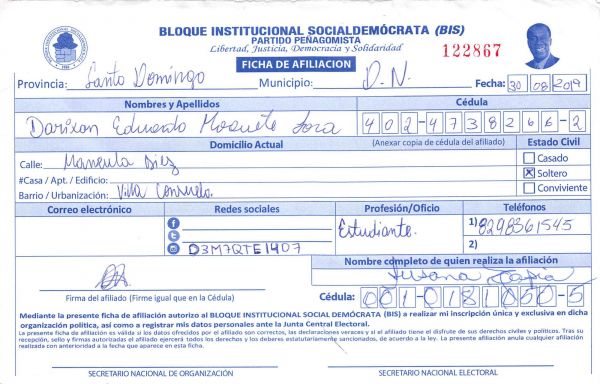 BLOQUE INSTITUCIONAL SOCIALDEMÓCRATA (BIS)
PARTIDO PEÑAGOMISTA
Libertad, Justicia, Democracia y Solidaridad
122867
FICHA DE AFILIACION
Provincia: Santo Domingo Municipio: D.N. Fecha: 30 08 2019
Nombres y Apellidos Cédula
Darixon Eduardo Mosquete Sosa 402-4738266-2
Domicilio Actual (Anexar copia de cédula del afiliado) Estado Civil
Calle: Manuela Diez Casado
#Casa / Apt. / Edificio: X Soltero
Barrio / Urbanización: Villa Consuelo. Conviviente
Correo electrónico Redes sociales Profesión/Oficio Teléfonos
Estudiante. 1) 8298361545
D3M7QTE1407 2)
Nombre completo de quien realiza la afiliación
Susana Tapia
Firma del afiliado (Firme igual que en la Cédula) Cédula: 001-0181050-5
Mediante la presente ficha de afiliación autorizo al BLOQUE INSTITUCIONAL SOCIAL DEMÓCRATA (BIS) a realizar mi inscripción única y exclusiva en dicha
organización política, así como a registrar mis datos personales ante la Junta Central Electoral.
La presente ficha de afiliación es válida si los datos ofrecidos por el afiliado son correctos, las declaraciones veraces y si el afiliado tiene el disfrute de sus derechos civiles y políticos. Tras su
recepción, sello y firmas autorizadas el afiliado ejercerá todos los derechos y los deberes estatutariamente sancionados, de acuerdo a la ley. La presente afiliación anula cualquier afiliación
realizada con anterioridad a la fecha que aparece en esta ficha.
SECRETARIO NACIONAL DE ORGANIZACIÓN SECRETARIO NACIONAL ELECTORAL